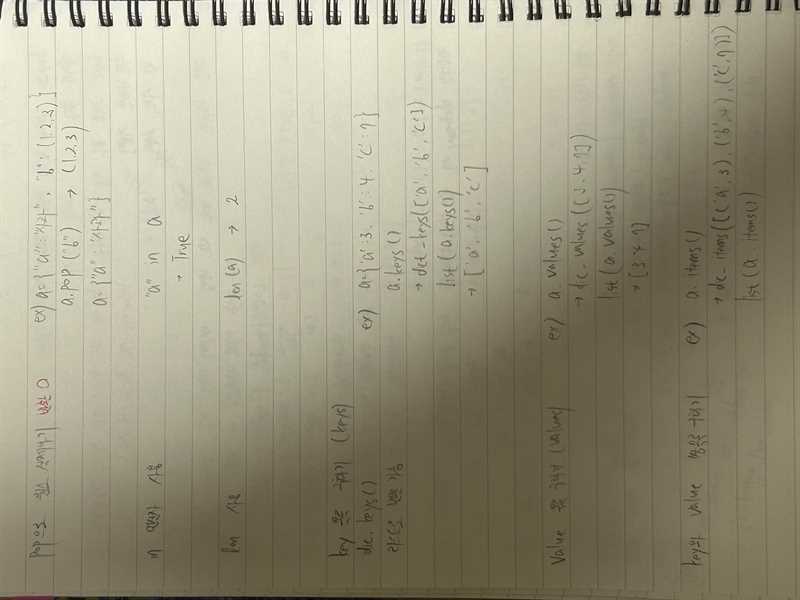 pop으로 요소 삭제하기 반환 O ex) a={"a":"사과", "b":(1,2,3)}
a.pop("b") → (1,2,3)
a={"a":"사과"}
in 연산자 사용 "a" in a
→ True
len 사용 len(a) → 2
key 만을 구하기 (keys) ex) a={'a':3, 'b':4, 'c':7}
dic.keys() a.keys()
리스트로 변환 가능 → dict_keys(['a', 'b', 'c'])
list(a.keys())
→ ['a', 'b', 'c']
Value 를 구하기 (values) ex) a.values()
→ dic_values([3,4,7])
list(a.values())
→ [3 4 7]
key와 value 쌍을 구하기 ex) a.items()
→ dic_items([('a',3), ('b',4), ('c',7)])
list(a.items())